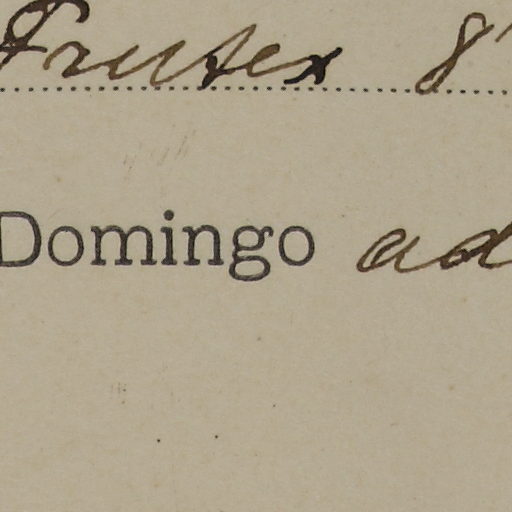 Frutex 8'
Domingo ad